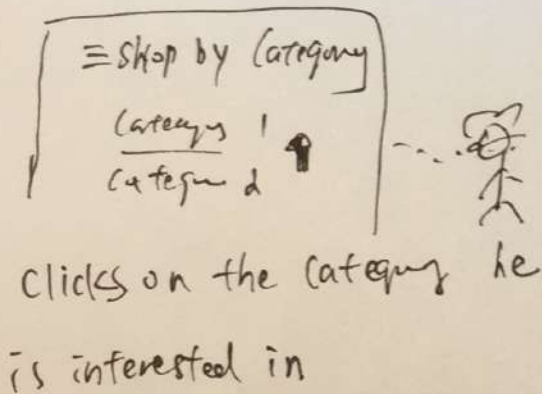 ≡ Shop by Category
Category 1
Category 2
clicks on the category he
is interested in